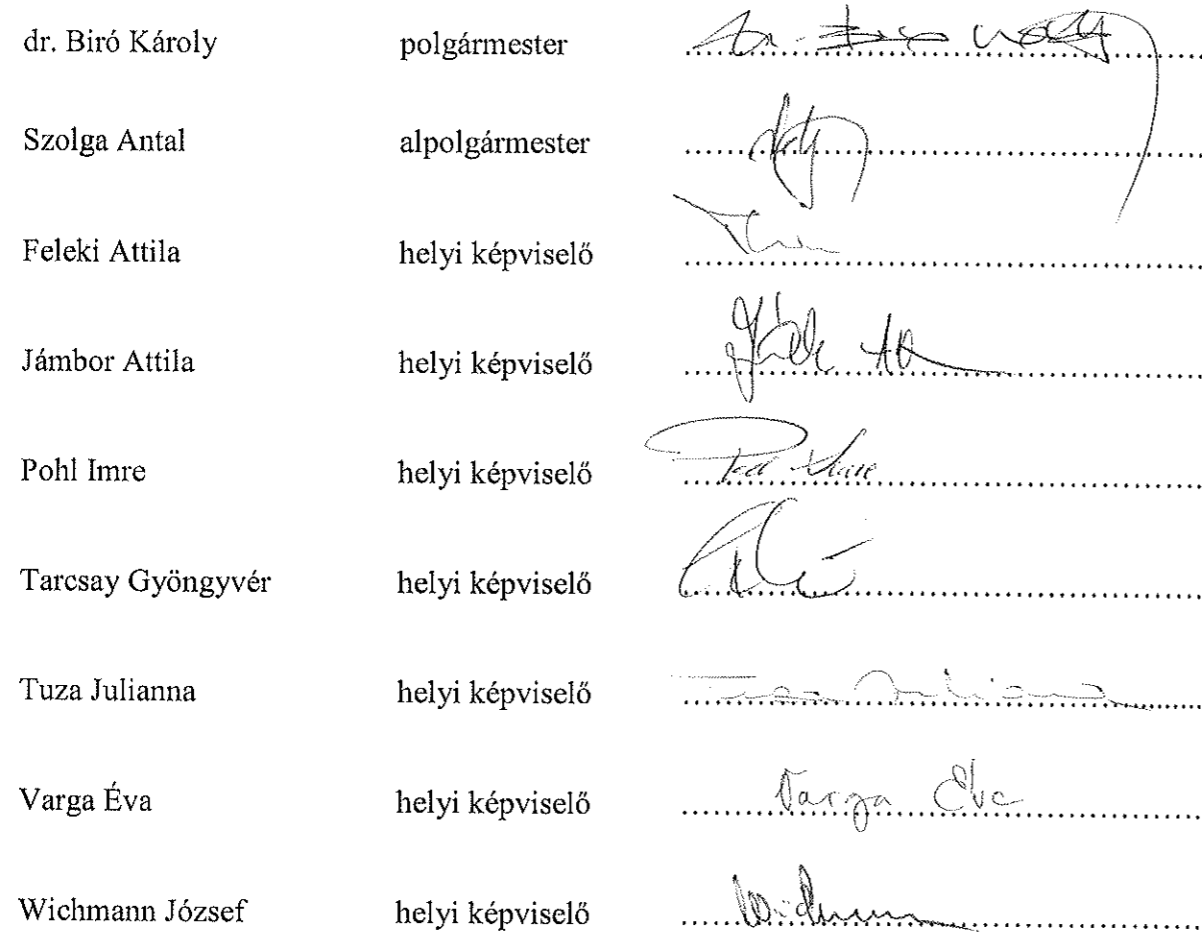 dr. Biró Károly polgármester
Szolga Antal alpolgármester
Feleki Attila helyi képviselő
Jámbor Attila helyi képviselő
Pohl Imre helyi képviselő
Tarcsay Gyöngyvér helyi képviselő
Tuza Julianna helyi képviselő
Varga Éva helyi képviselő Varga Éva
Wichmann József helyi képviselő